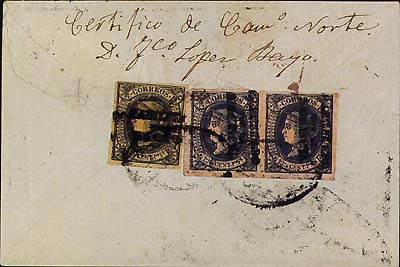 Certifico de Cam.º Norte.
D. Fco. Lopez Bayo.
CORREOS CORREOS CORREOS